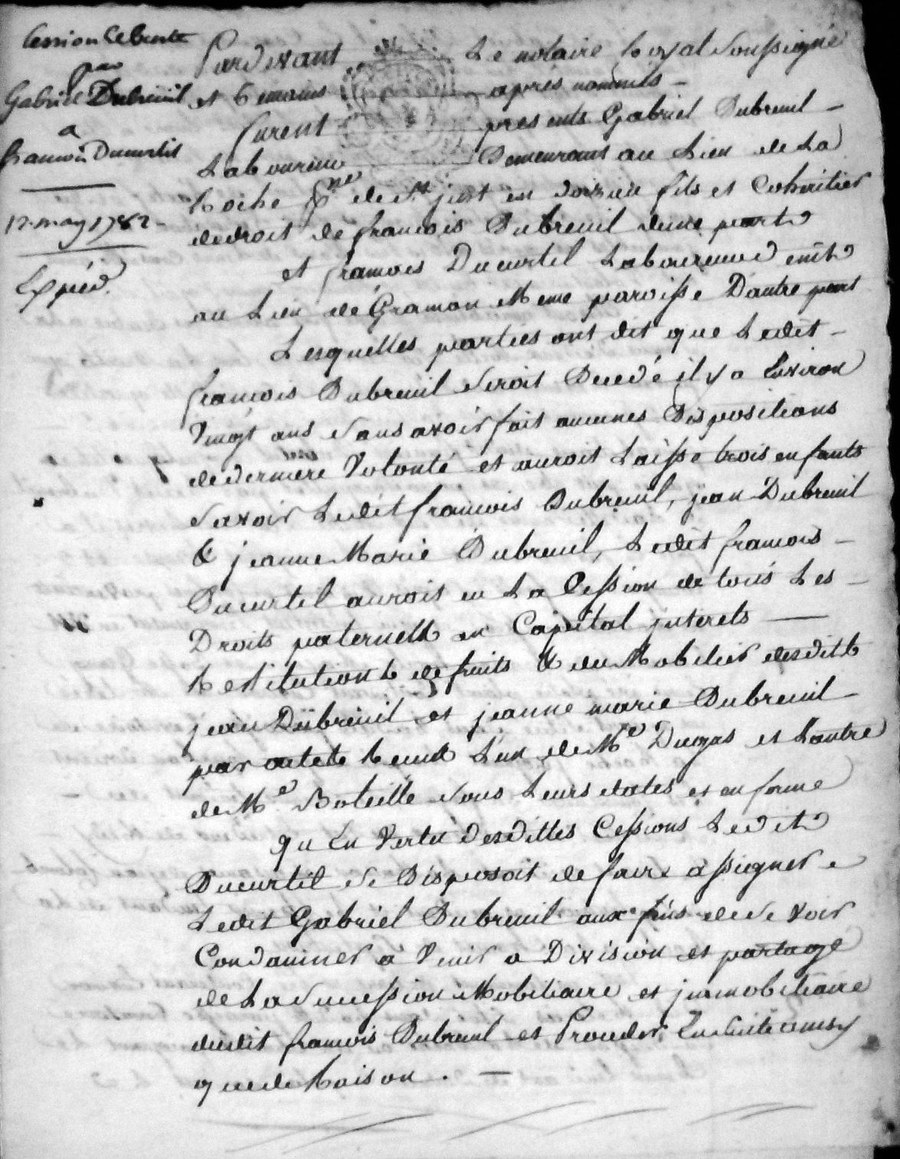 Cession
par
Gabriel Dubreuil
a
francois Ducurtil
12 may 1782
Expéd.
Pardevant Le notaire Royal Soussigné
et temoins apres nommés
furent presents Gabriel Dubreuil
Laboureur Demeurant au Lieu de La
Roche psse de st just en fils et Coheritier
de droit de francois Dubreuil dune part
et francois Ducurtil Laboureur
au Lieu de Gramon Meme paroisse Dautre part
Lesquelles parties ont dit que Ledit
francois Dubreuil Seroit Decedé il y a Environ
Vingt ans Sans avoir fait aucunes Dispositions
de derniere Volonté et auroit Laissé trois enfants
Savoir Ledit francois Dubreuil, jean Dubreuil
& jeanne Marie Dubreuil, Ledit francois
Ducurtil auroit eu La Cession de tous Les
Droits paternels en Capital interets
Restitutions de fruits & du Mobilier desdits
jean Dubreuil et jeanne marie Dubreuil
par actes Recus Lun de Me Dugas et Lautre
de Me Boteille Sous Leurs dates et en forme
qu En Vertu desdittes Cessions Ledit
Ducurtil Se Disposoit de faire assigner
Ledit Gabriel Dubreuil aux fins de Se Voir
Condamner à Venir a Division et partage
de La Succession Mobiliaire et immobiliaire
dudit francois Dubreuil et Proceder Ensuite ainsy
que de Raison.